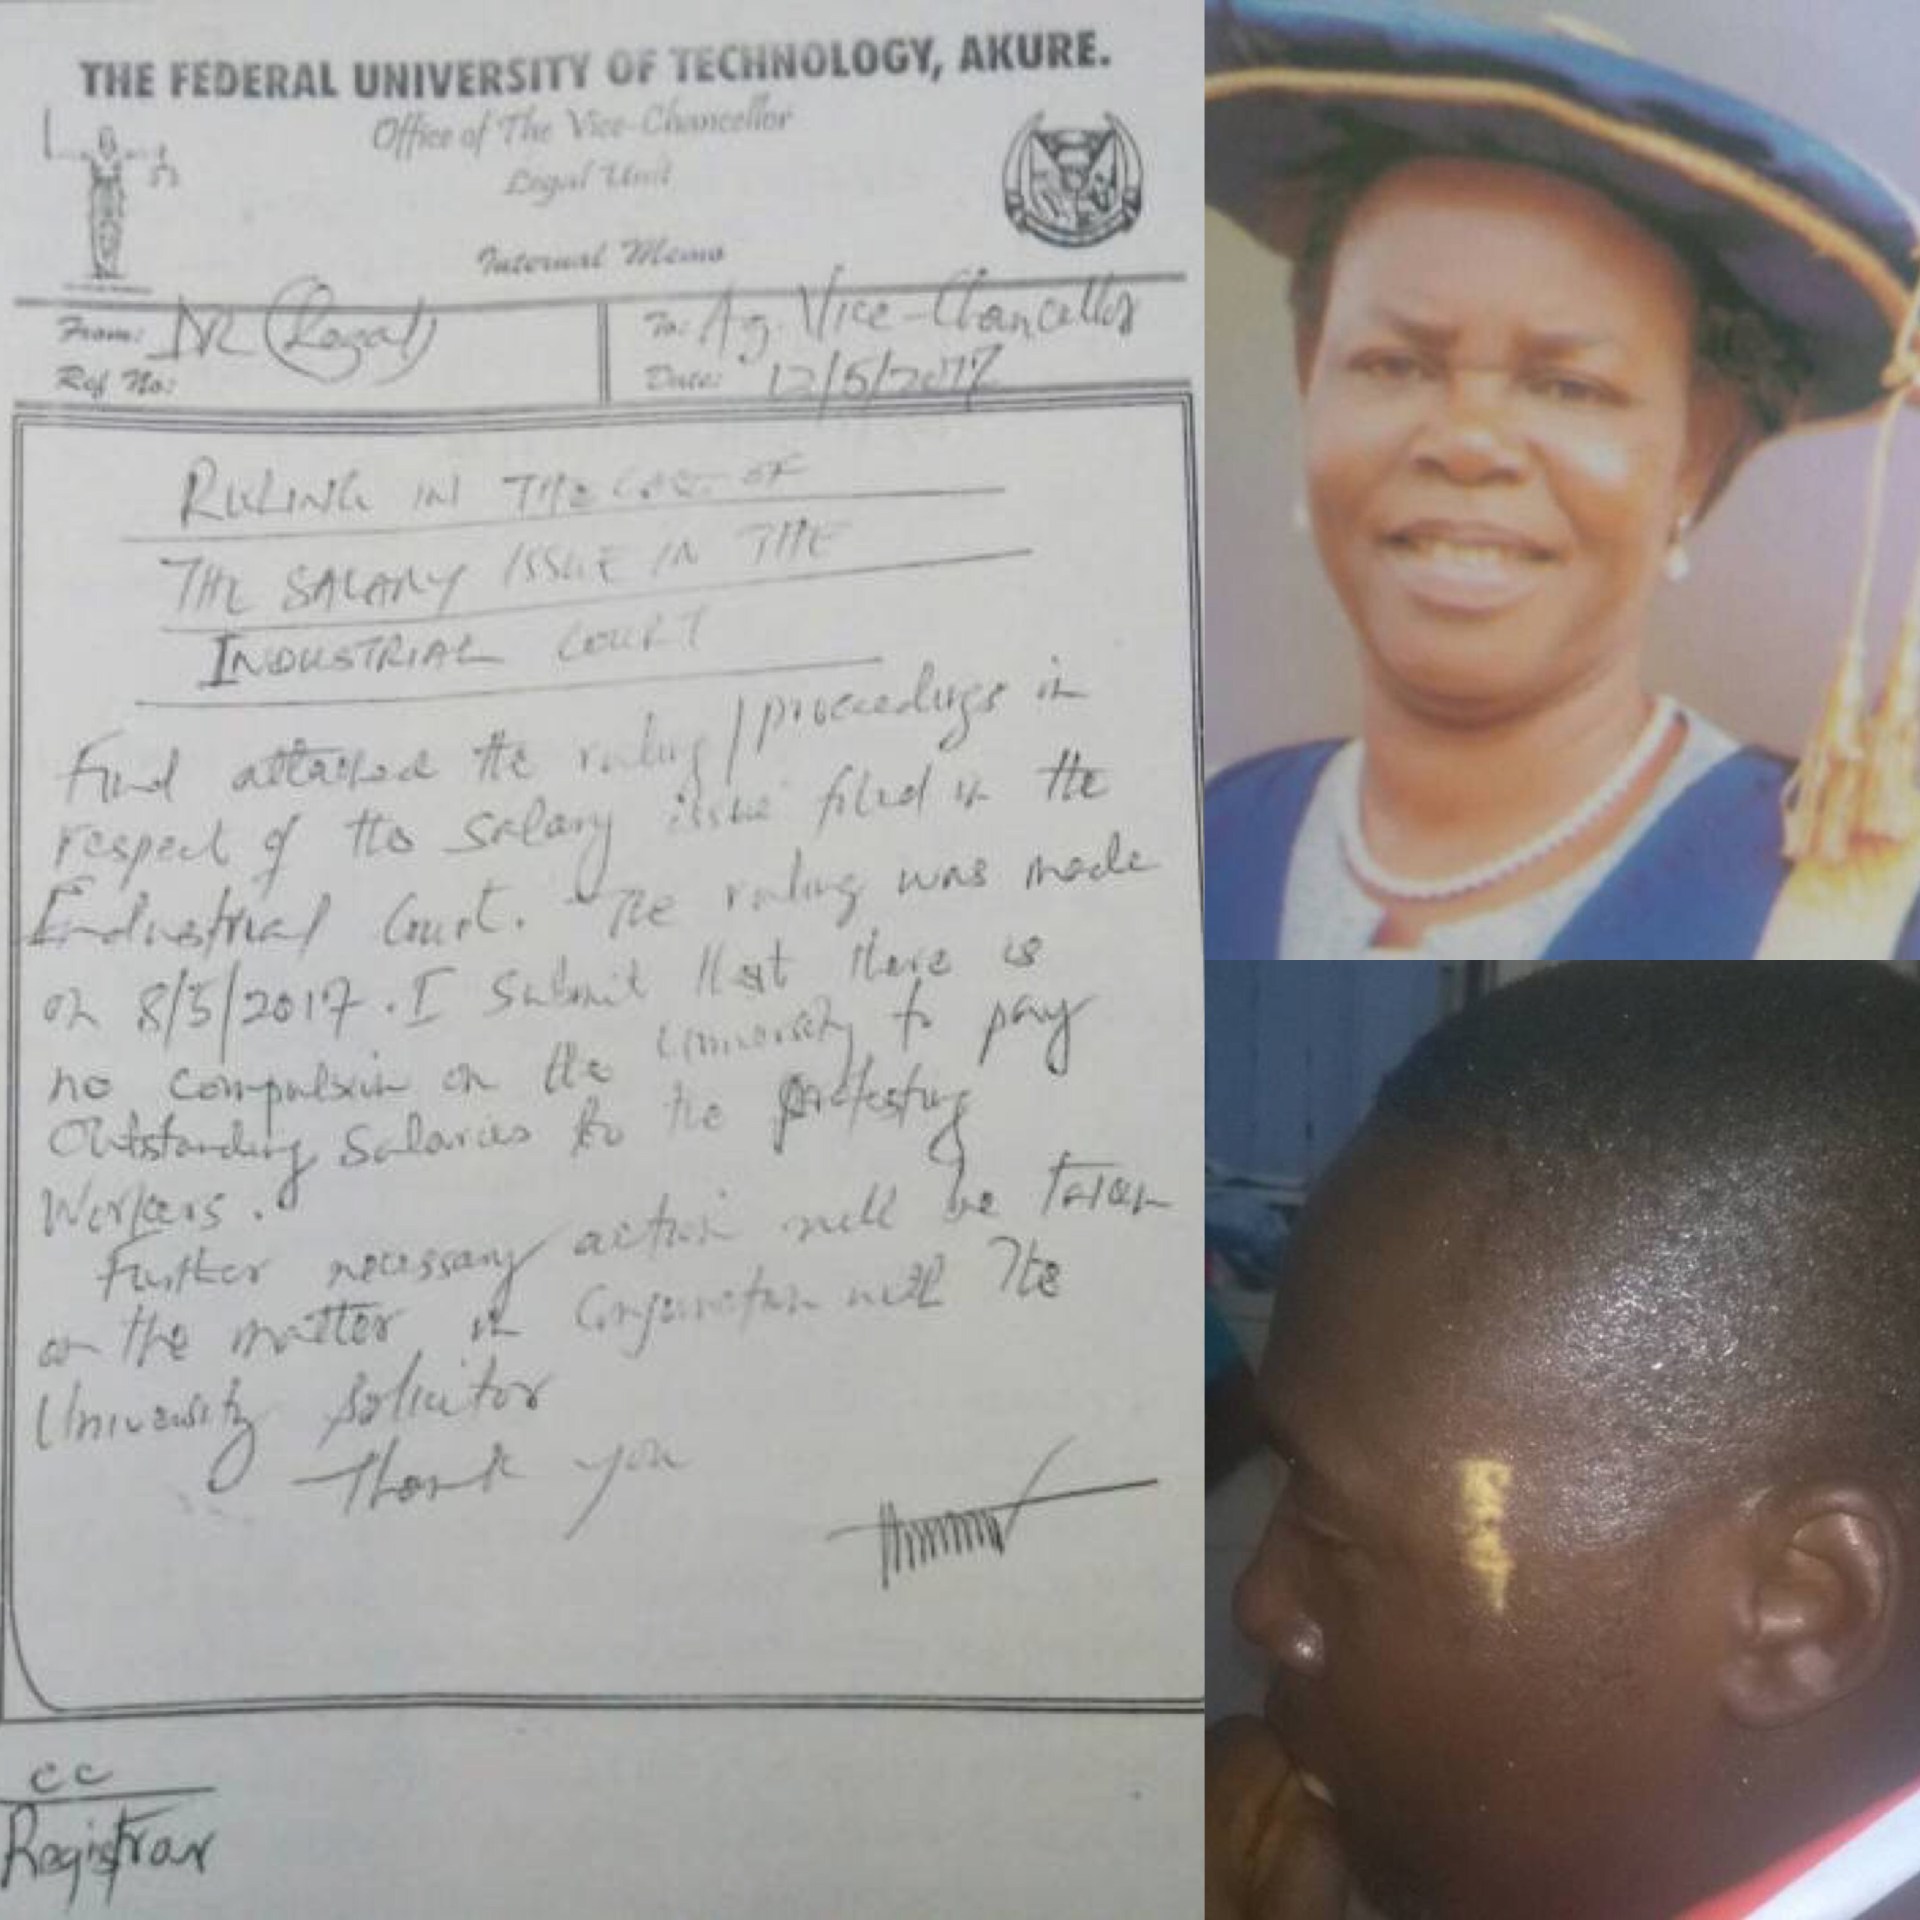 THE FEDERAL UNIVERSITY OF TECHNOLOGY, AKURE.
Office of The Vice-Chancellor
Legal Unit
Internal Memo
From: DR (Legal)
To: Ag. Vice-Chancellor
Ref No:
Date: 12/5/2017
RULING IN THE CASE OF
THE SALARY ISSUE IN THE
INDUSTRIAL COURT
Find attached the ruling/proceedings in
respect of the salary issue filed in the
Industrial Court. The ruling was made
on 8/5/2017. I submit that there is
no compulsion on the University to pay
Outstanding Salaries to the protesting
Workers.
Further necessary action will be taken
on the matter in Conjunction with The
University Solicitor
Thank you
cc
Registrar